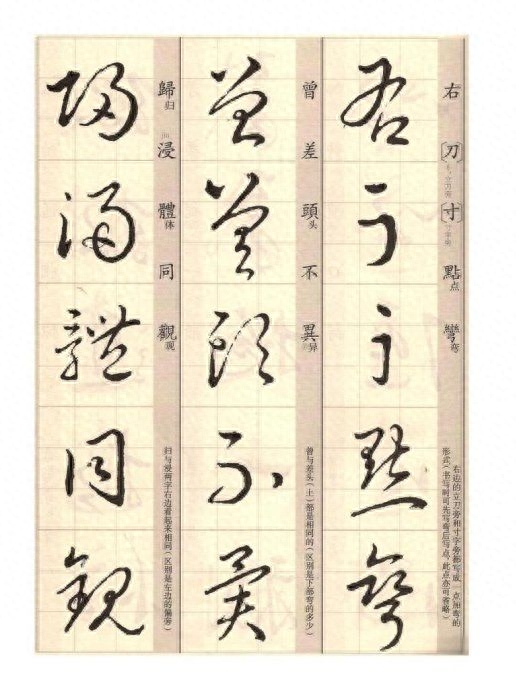 右 刀 寸 點点 彎弯
右边的立刀旁和寸字旁都写成一点加弯的
形式(书写时可先写弯后写点,此点亦可省略)
曾 差 頭头 不 異异
曾与差头(上)都是相同的(区别是下部弯的多少)
歸归 浸 體体 同 觀观
归与浸两字右边看起来相同(区别是左边的偏旁)